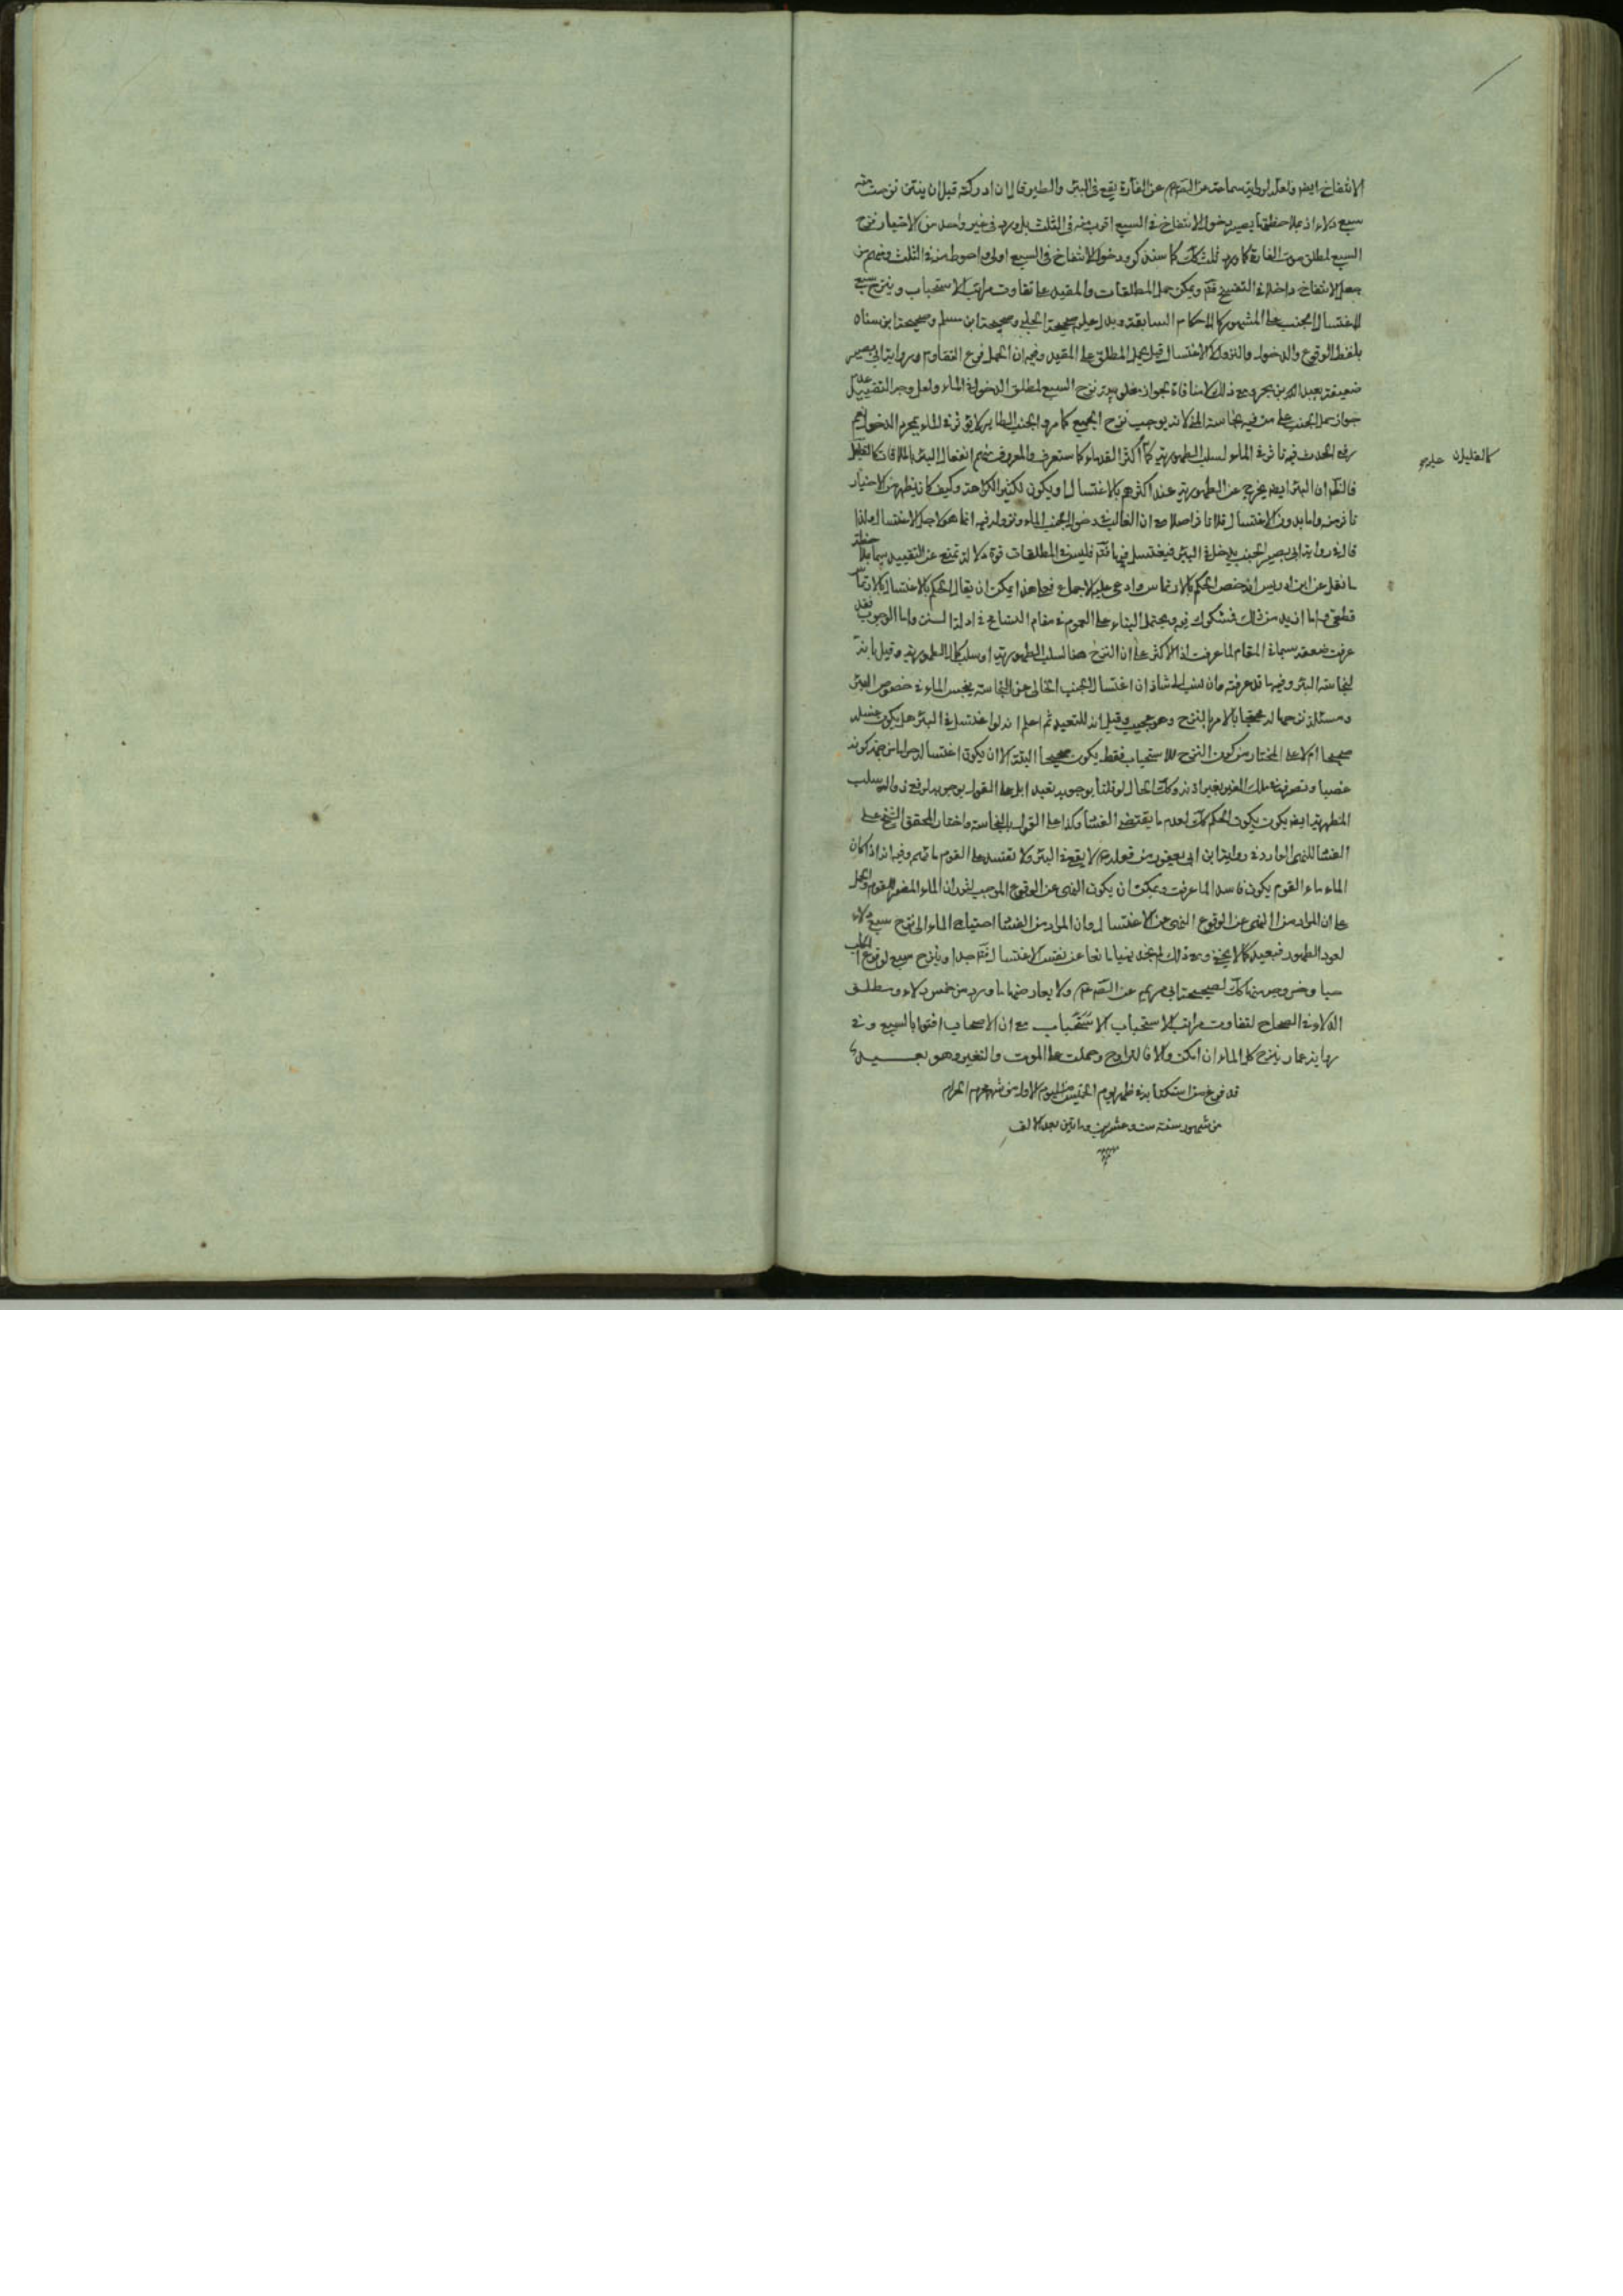 الانتفاخ ايضا ولعله لرواية سماعة عن الصم عن الفارة يقع في البئر والطير قال ان ادركته قبل ان ينتن نزحت منه
سبع دلاء اذ بملاحظتها يصير دخول الانتفاخ في السبع اقرب منه في الثلث بل ورد في غير واحد من الاخبار نزح
السبع لمطلق موت الفارة كما ورد ثلث كك كما سنذكر ودخول الانتفاخ في السبع اولى واحوط منه في الثلث ومنهم من
جعل الانتفاخ داخلا في التفسخ فتم ويمكن حمل المطلقات والمقيد على تفاوت مراتب الاستحباب وينزح سبع
لاغتسال الجنب على المشهور كالاحكام السابقة ويدل عليه صحيحة الحلبي وصحيحة ابن مسلم وصحيحة ابن سنان
بلفظ الوقوع والدخول والنزول لا الاغتسال قيل يحمل المطلق على المقيد وفيه ان الحمل فرع التقاوم ورواية ابي بصير
ضعيفة بعبد الله بن بحر ومع ذلك لا منافاة لجواز نزح السبع لمطلق الدخول في الماء ولعل وجه التقييد عدم
جواز حمل الجنب على من فيه نجاسة المني لانه يوجب نزح الجميع كما مر والجنب الطاهر لا يؤثر في الماء بمجرد الدخول نعم
رفع الحدث فيه تاثر في الماء لسلب الطهورية كما اكثر القدماء كما ستعرف والمعروف منهم انفعال البئر بالملاقات كالقليل
فالظم ان البئر ايضا يخرج عن الطهورية عند اكثرهم بالاغتسال او يكون لكثير الكراهة وكيف كان يظهر من الاخبار
تاثر منه واما بدون الاغتسال فلا تاثر اصلا مع ان الغالب في دخول الجنب الماء ونزوله فيه انما هو لاجل الاغتسال ولذا
قال في رواية ابي بصير الجنب يدخل في البئر فيغتسل فيها فتم فليس في المطلقات قوة دلالة تمنع عن التقييد سيما بملاحظة
ما نقل عن ابن ادريس انه خصص الحكم بالارتماس وادعى عليه الاجماع فعلى هذا يمكن ان يقال الحكم بالاغتسال بالارتماس
قطعي واما ازيد من ذلك فمشكوك فيه ويحتمل البناء على العموم في مقام التسامح في ادلة السنن واما الوجوب فقد
عرفت ضعفه سيما في المقام لما عرفت اذ الاكثر على ان النزح هنا لسلب الطهورية او سلب كمال الطهورية وقيل بانه
لنجاسة البئر وفيه ما قد عرفته وان نسب الى شاذ ان اغتسال الجنب الخالي عن النجاسة ينجس الماء في خصوص البئر
ومسئلة نزحها له محتجا بالامر بالنزح وهو عجيب وقيل انه للتعبد ثم اعلم انه لو اغتسل في البئر هل يكون غسله
صحيحا ام لا على المختار من كون النزح للاستحباب فقط يكون صحيحا البتة الا ان يكون اغتساله حراما من جهة كونه
غصبا وتصرفا في ملك الغير بغير اذنه وكك الحال لو قلنا بوجوبه تعبدا بل على القول بوجوبه لرفع زوال سلب
المطهرية ايضا يكون يكون الحكم كك لعدم ما يقتضي الفساد وكذا على القول بالنجاسة واختار المحقق الشيخ علي
الفساد للنهي الوارد في رواية ابن ابي يعفور من قوله عم لا يقع في البئر ولا تفسد على القوم ماءهم وفيه انه اذا كان
الماء ماء القوم يكون فاسدا لما عرفت ويمكن ان يكون النهي عن الوقوع الموجب لثوران الماء المضر للقوم والحمل
على ان المراد من النهي عن الوقوع النهي عن الاغتسال وان المراد من الفساد احتياج الماء الى نزح سبع دلاء
لعود الطهور فبعيد كما لا يخفى ومع ذلك لم نجد نهيا مانعا عن نفس الاغتسال فتم جيدا وينزح سبع لوقوع الكلب
حيا وخروجه منها كك لصحيحة ابي مريم عن الصم عم ولا يعارضها ما ورد من خمس دلاء ومطلق
الدلاء في الصحاح لتفاوت مراتب الاستحباب الاستحباب مع ان الاصحاب افتوا بالسبع وفي
رواية عمار ينزح كل الماء ان امكن والا فالتراوح وحملت على الموت والتغير وهو بعيد
قد فرغ من استكتابه في ظهر يوم الخميس من اليوم الاول من شهر محرم الحرام
من شهور سنة ست وعشرين وماتين بعد الالف
كالقليل